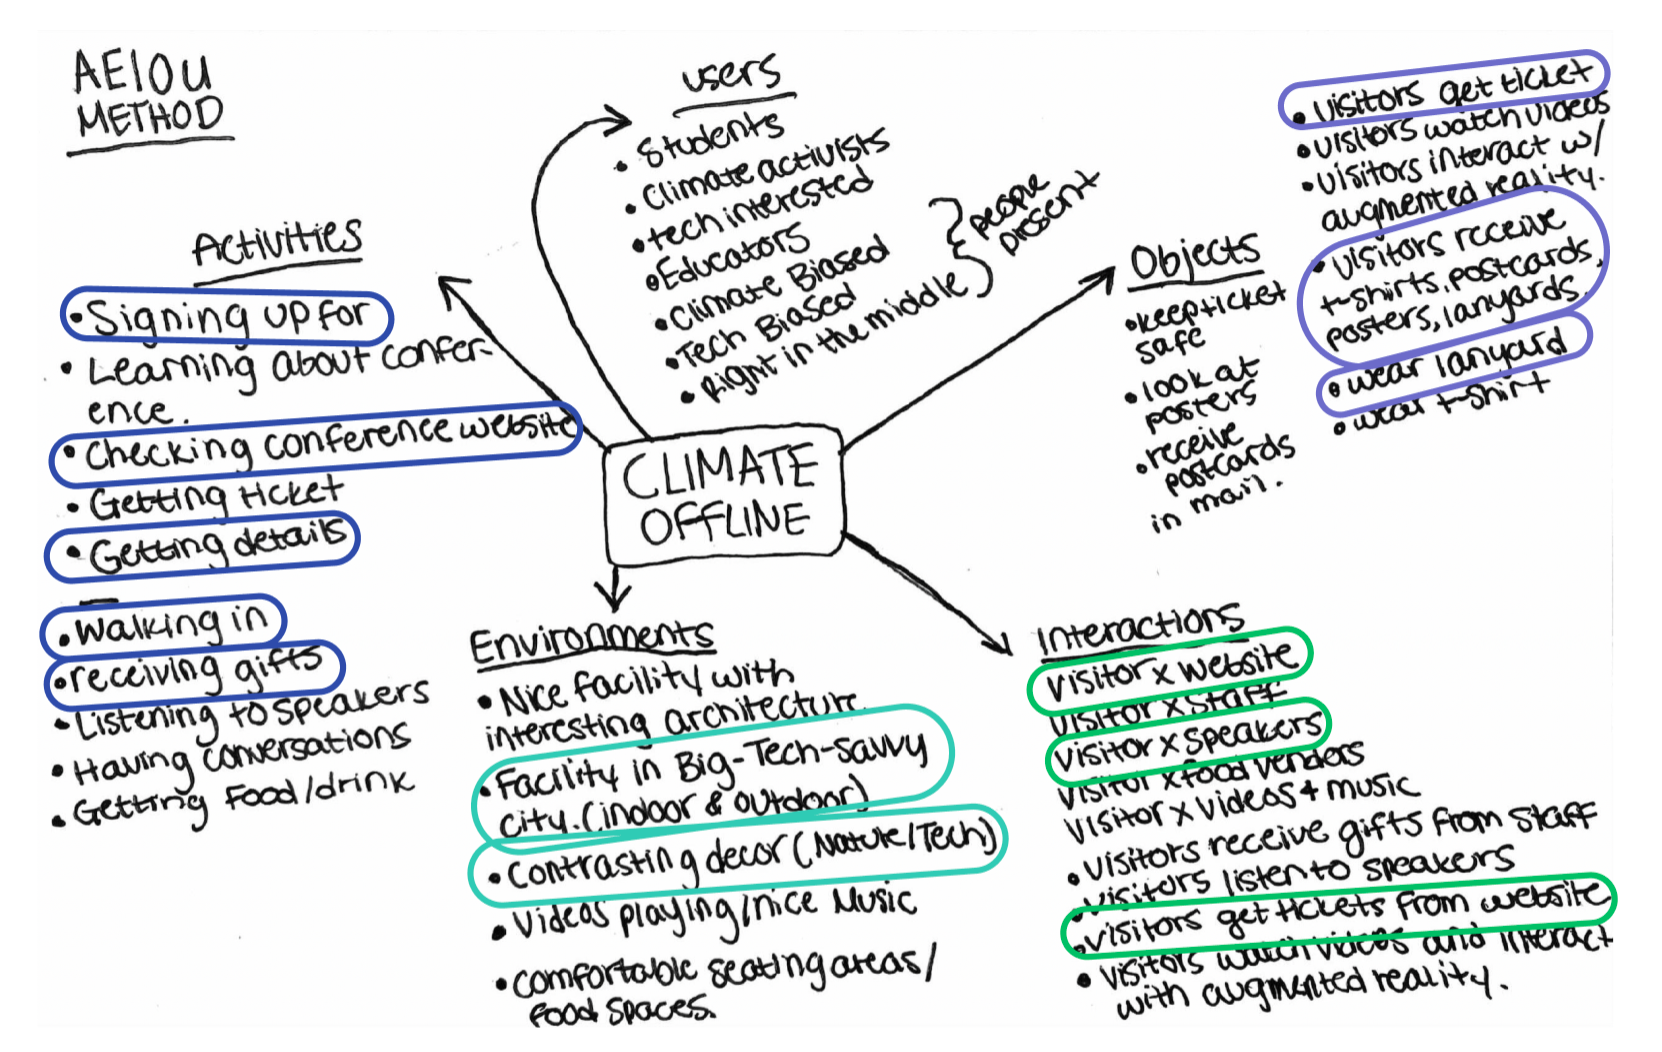 AEIOU
METHOD
users
• Students
• Climate activists
• tech interested
• Educators
• Climate Biased
• Tech Biased
• Right in the middle
people
present
Activities
• Signing up for
• Learning about confer-
ence.
• Checking conference website
• Getting ticket
• Getting details
• Walking in
• receiving gifts
• Listening to speakers
• Having conversations
• Getting Food/drink
CLIMATE
OFFLINE
Objects
• keep ticket
safe
• look at
posters
• receive
postcards
in mail.
• Visitors get ticket
• Visitors watch videos
• Visitors interact w/
augmented reality.
• Visitors receive
t-shirts, postcards,
posters, lanyards.
• wear lanyard
• wear t-shirt
Environments
• Nice facility with
interesting architecture
• Facility in Big-Tech-savvy
city. (indoor & outdoor)
• Contrasting decor (Nature/Tech)
• Videos playing/nice Music
• comfortable seating areas/
food spaces.
Interactions
Visitor x website
Visitor x staff
Visitor x speakers
Visitor x food venders
Visitor x videos + music
• Visitors receive gifts from staff
• Visitors listen to speakers
• Visitors get tickets from website
• Visitors watch videos and interact
with augmented reality.